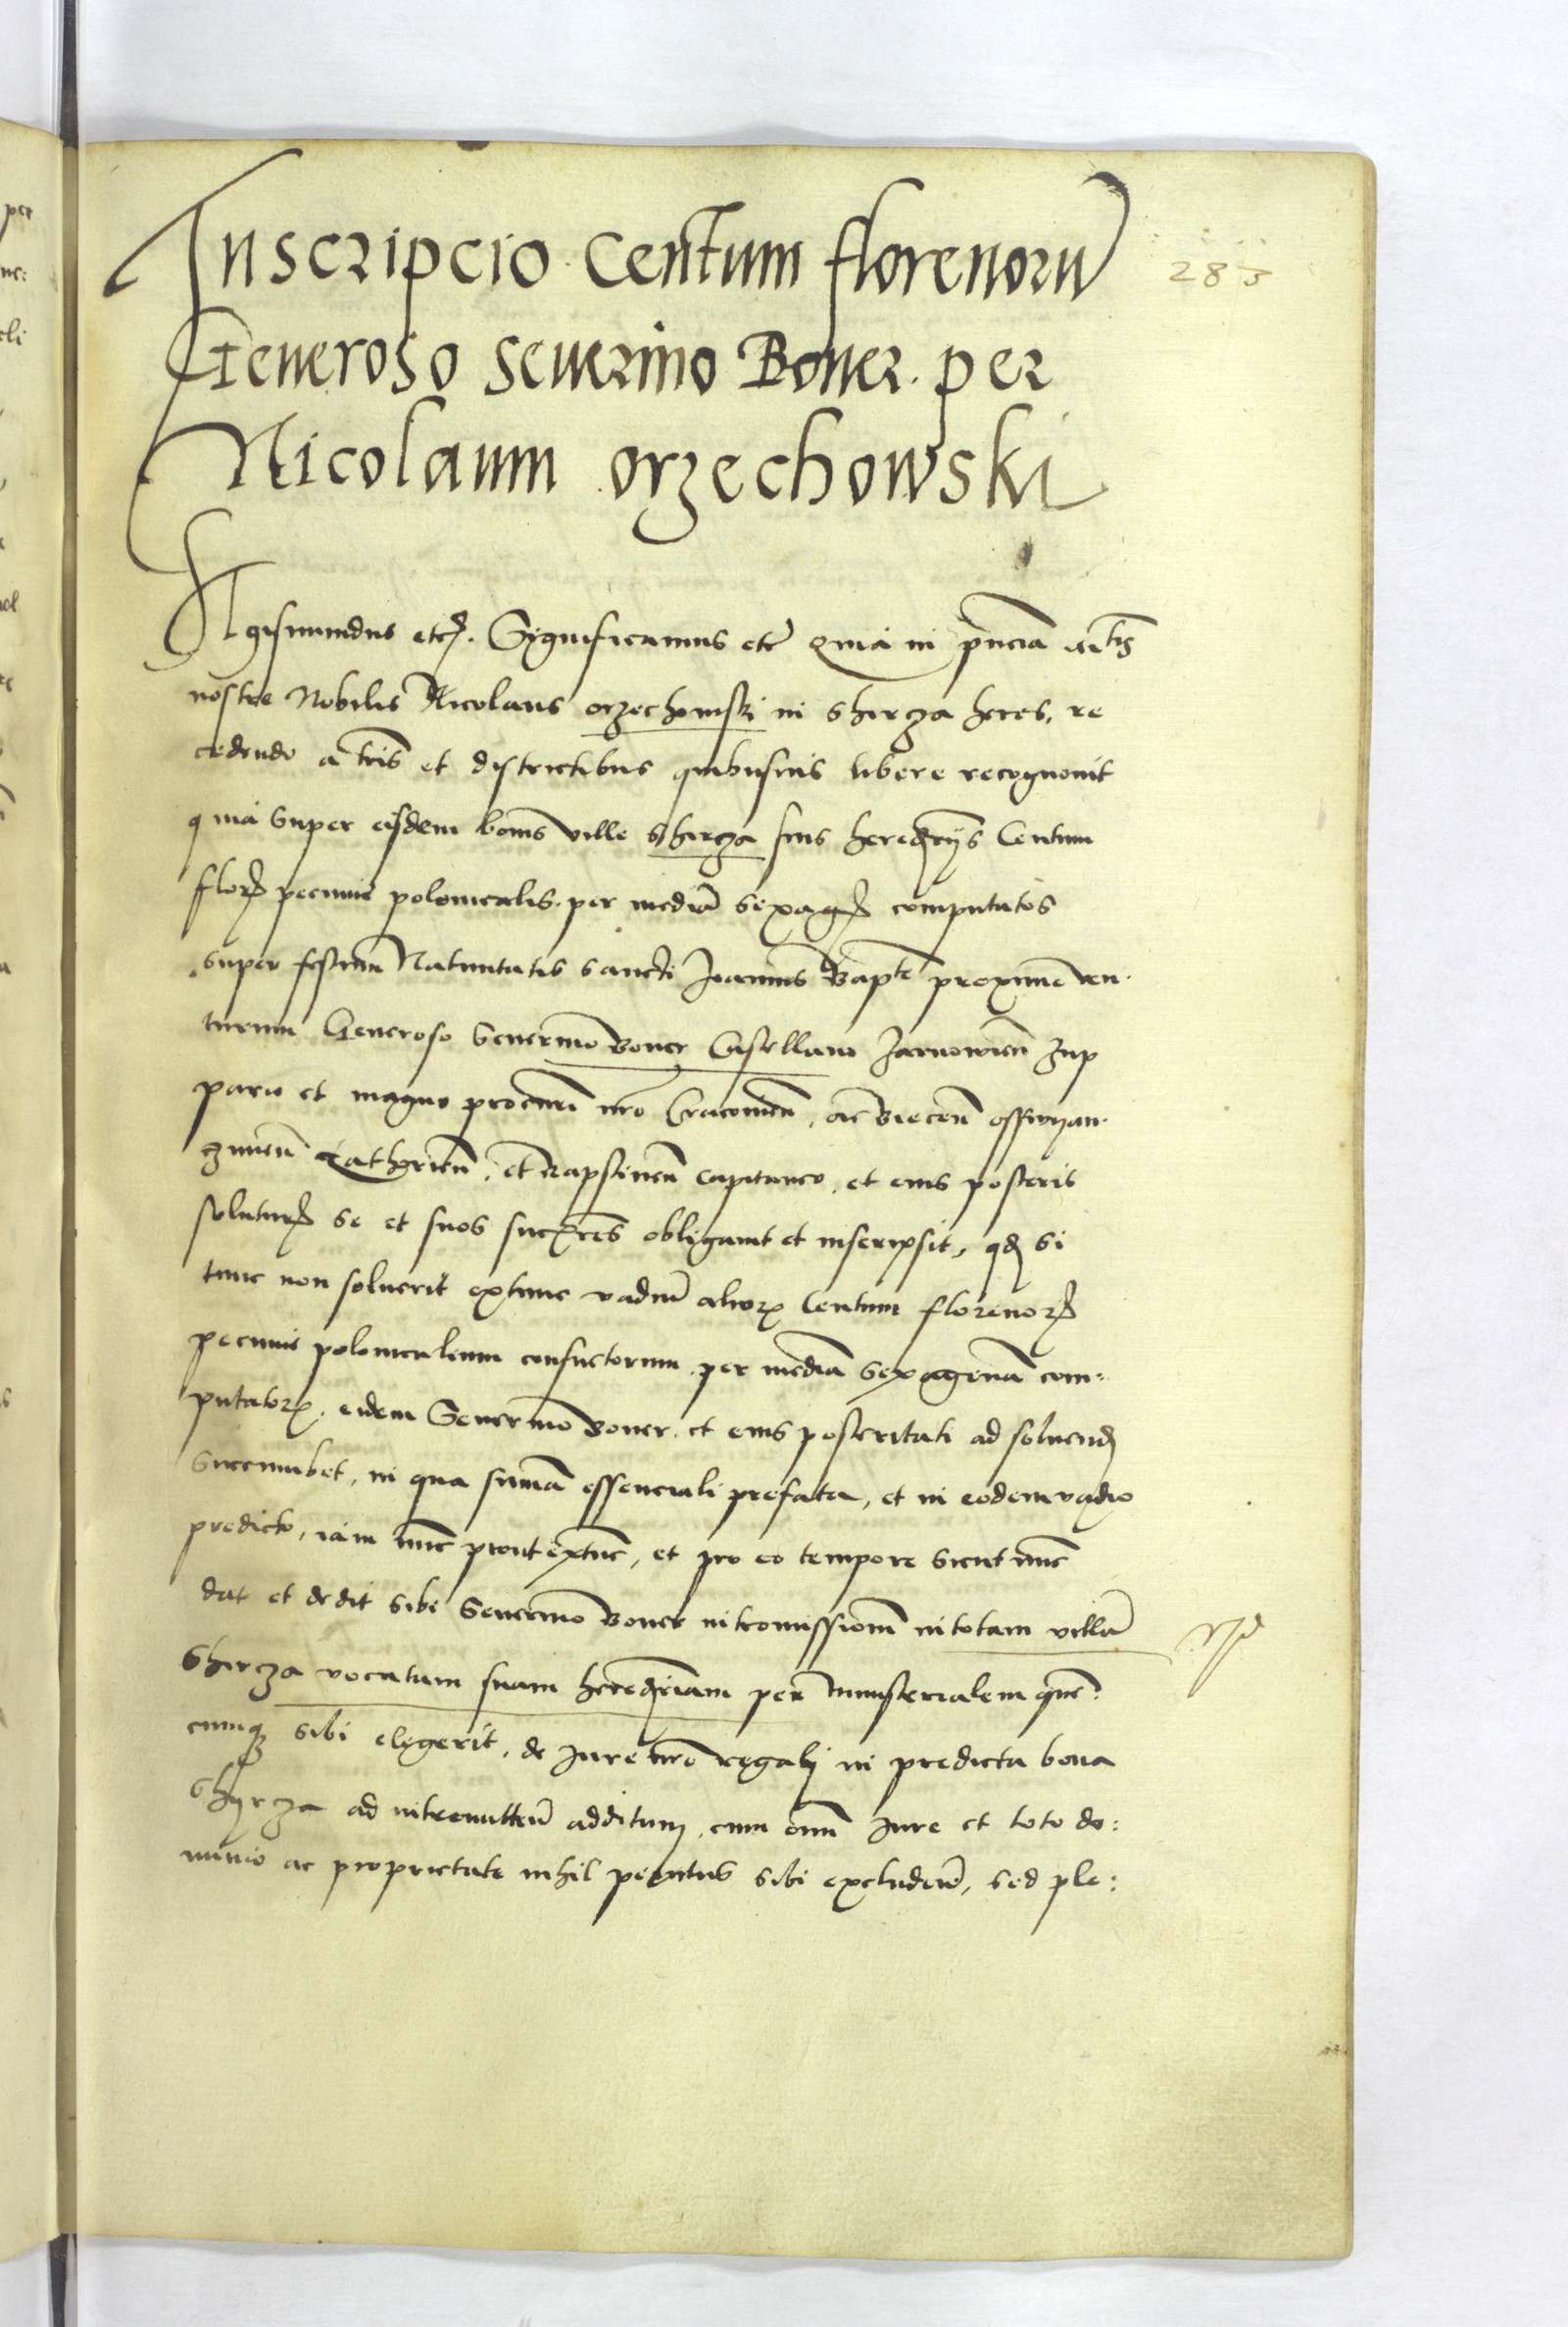 Inscripcio Centum florenorū
Generoso Seuerino Boner. per
Nicolaum orzechowski
283
Sigismundus etc̃. Significamus etc̃ Quia in pñcia
nostra Nobilis Nicolaus orzechowski in Shirza heres, re
cedendo a tr̃is et districtibus quibusuis libere recognouit
quia super eisdem bonis ville Shirza suis heredr̃ijs Centum
flor̃ pecunie polonicalis. per mediã sexag̃ computatos
super festum Natiuitatis Sancti Joannis Bapt̃e proxime ven.
turum Generoso Seuerino Boner Castellano Zarnowieñ Zup
pario et magno procurī nr̃o Cracouieñ, ac Bieceñ osswyan.
czimeñ et Rapstineñ Capitaneo. et eius posteris
soluturũ se et suos succ̃res obligauit et inscripsit, qd̃ si
tunc non soluerit extunc vadiũ alior̃ Centum florenor̃
pecunie polonicalium consuetorum. per mediã sexagenã com:
putator̃, eidem Seuerino Boner. et eius posteritati ad soluend̃
succumbet, in qua sum̃a essenciali prefata, et in eodem vadio
predicto, iam nũc prout extũc, et pro eo tempore sicut nũc
dat et dedit sibi Seuerino Boner intromissionẽ in totam villã
Shirza vocatam suam heredr̃iam per ministerialem quẽ:
cunq̃ sibi elegerit, de Jure nr̃o regali in predicta bona
Shyrza ad intromitteñ additum, cum om̃i Jure et toto do:
minio ac proprietate nihil penitus sibi excludeñ, sed ple: